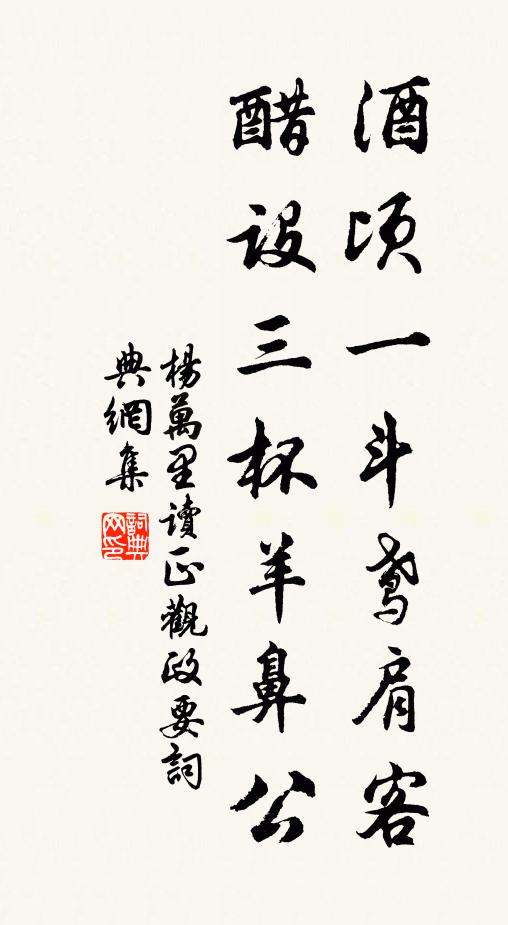 酒頃一斗鳶肩客
醋設三杯羊鼻公
楊萬里讀正觀政要詞
典網集
詞典
网印